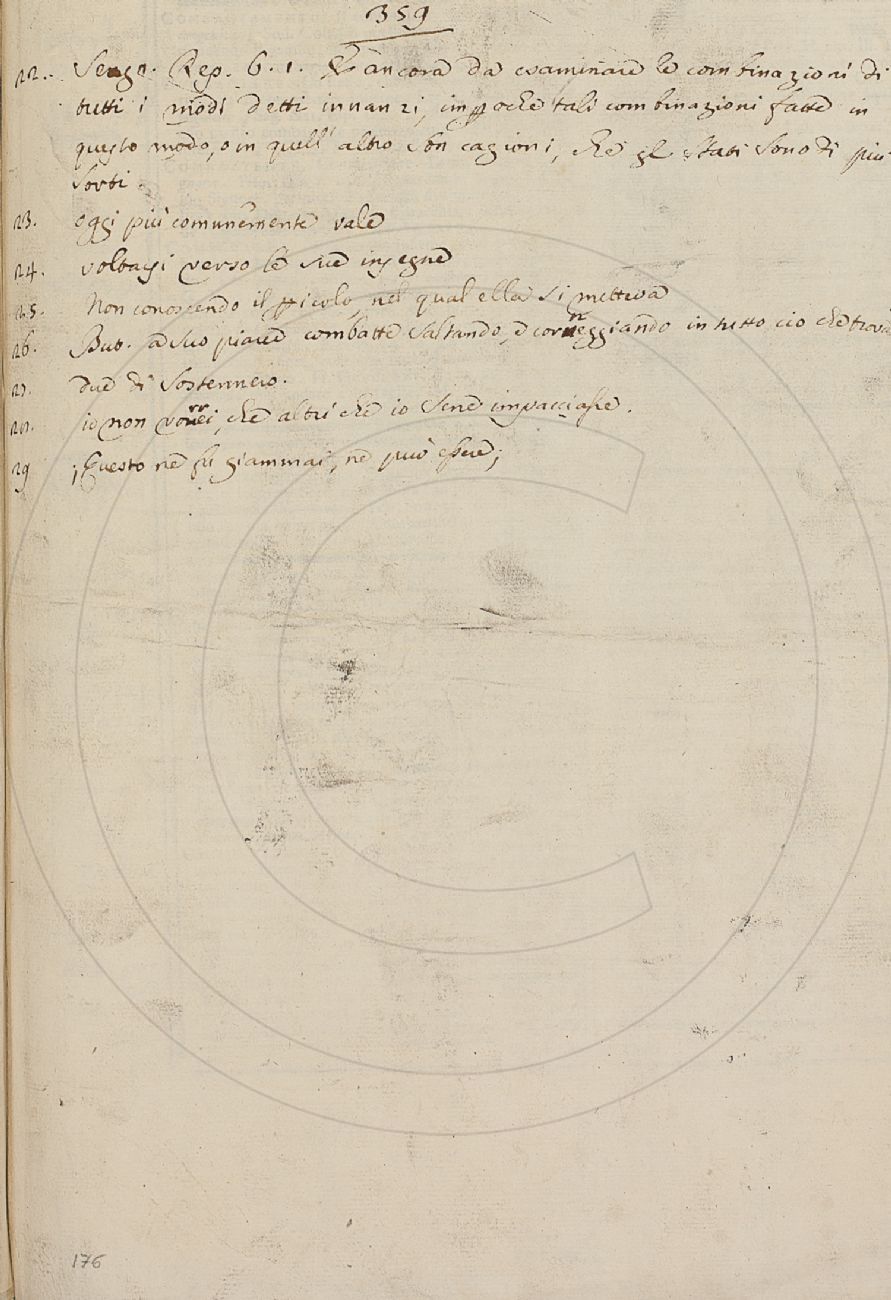 359
22. Segn. Rep. 6. 1. E ancora da esaminare le combinazioni di
tutti i modi detti innanzi, imp̱oche tali combinazioni fatte in
questo modo, o in quell' altro son cagioni, che gl. Stati sono di più
sorti.
23. oggi più comunemente vale
24. voltarsi verso le sue insegne
25. Non conoscendo il p̱icolo, nel qual ella si metteva
26. But. a suo piacere combatte saltando, e corneggiando in tutto cio che trova
27. due di sostennero.
28. io non vorrei, che altri che io sene impacciasse.
29 ; Questo ne fu giammai, ne può essere;
176